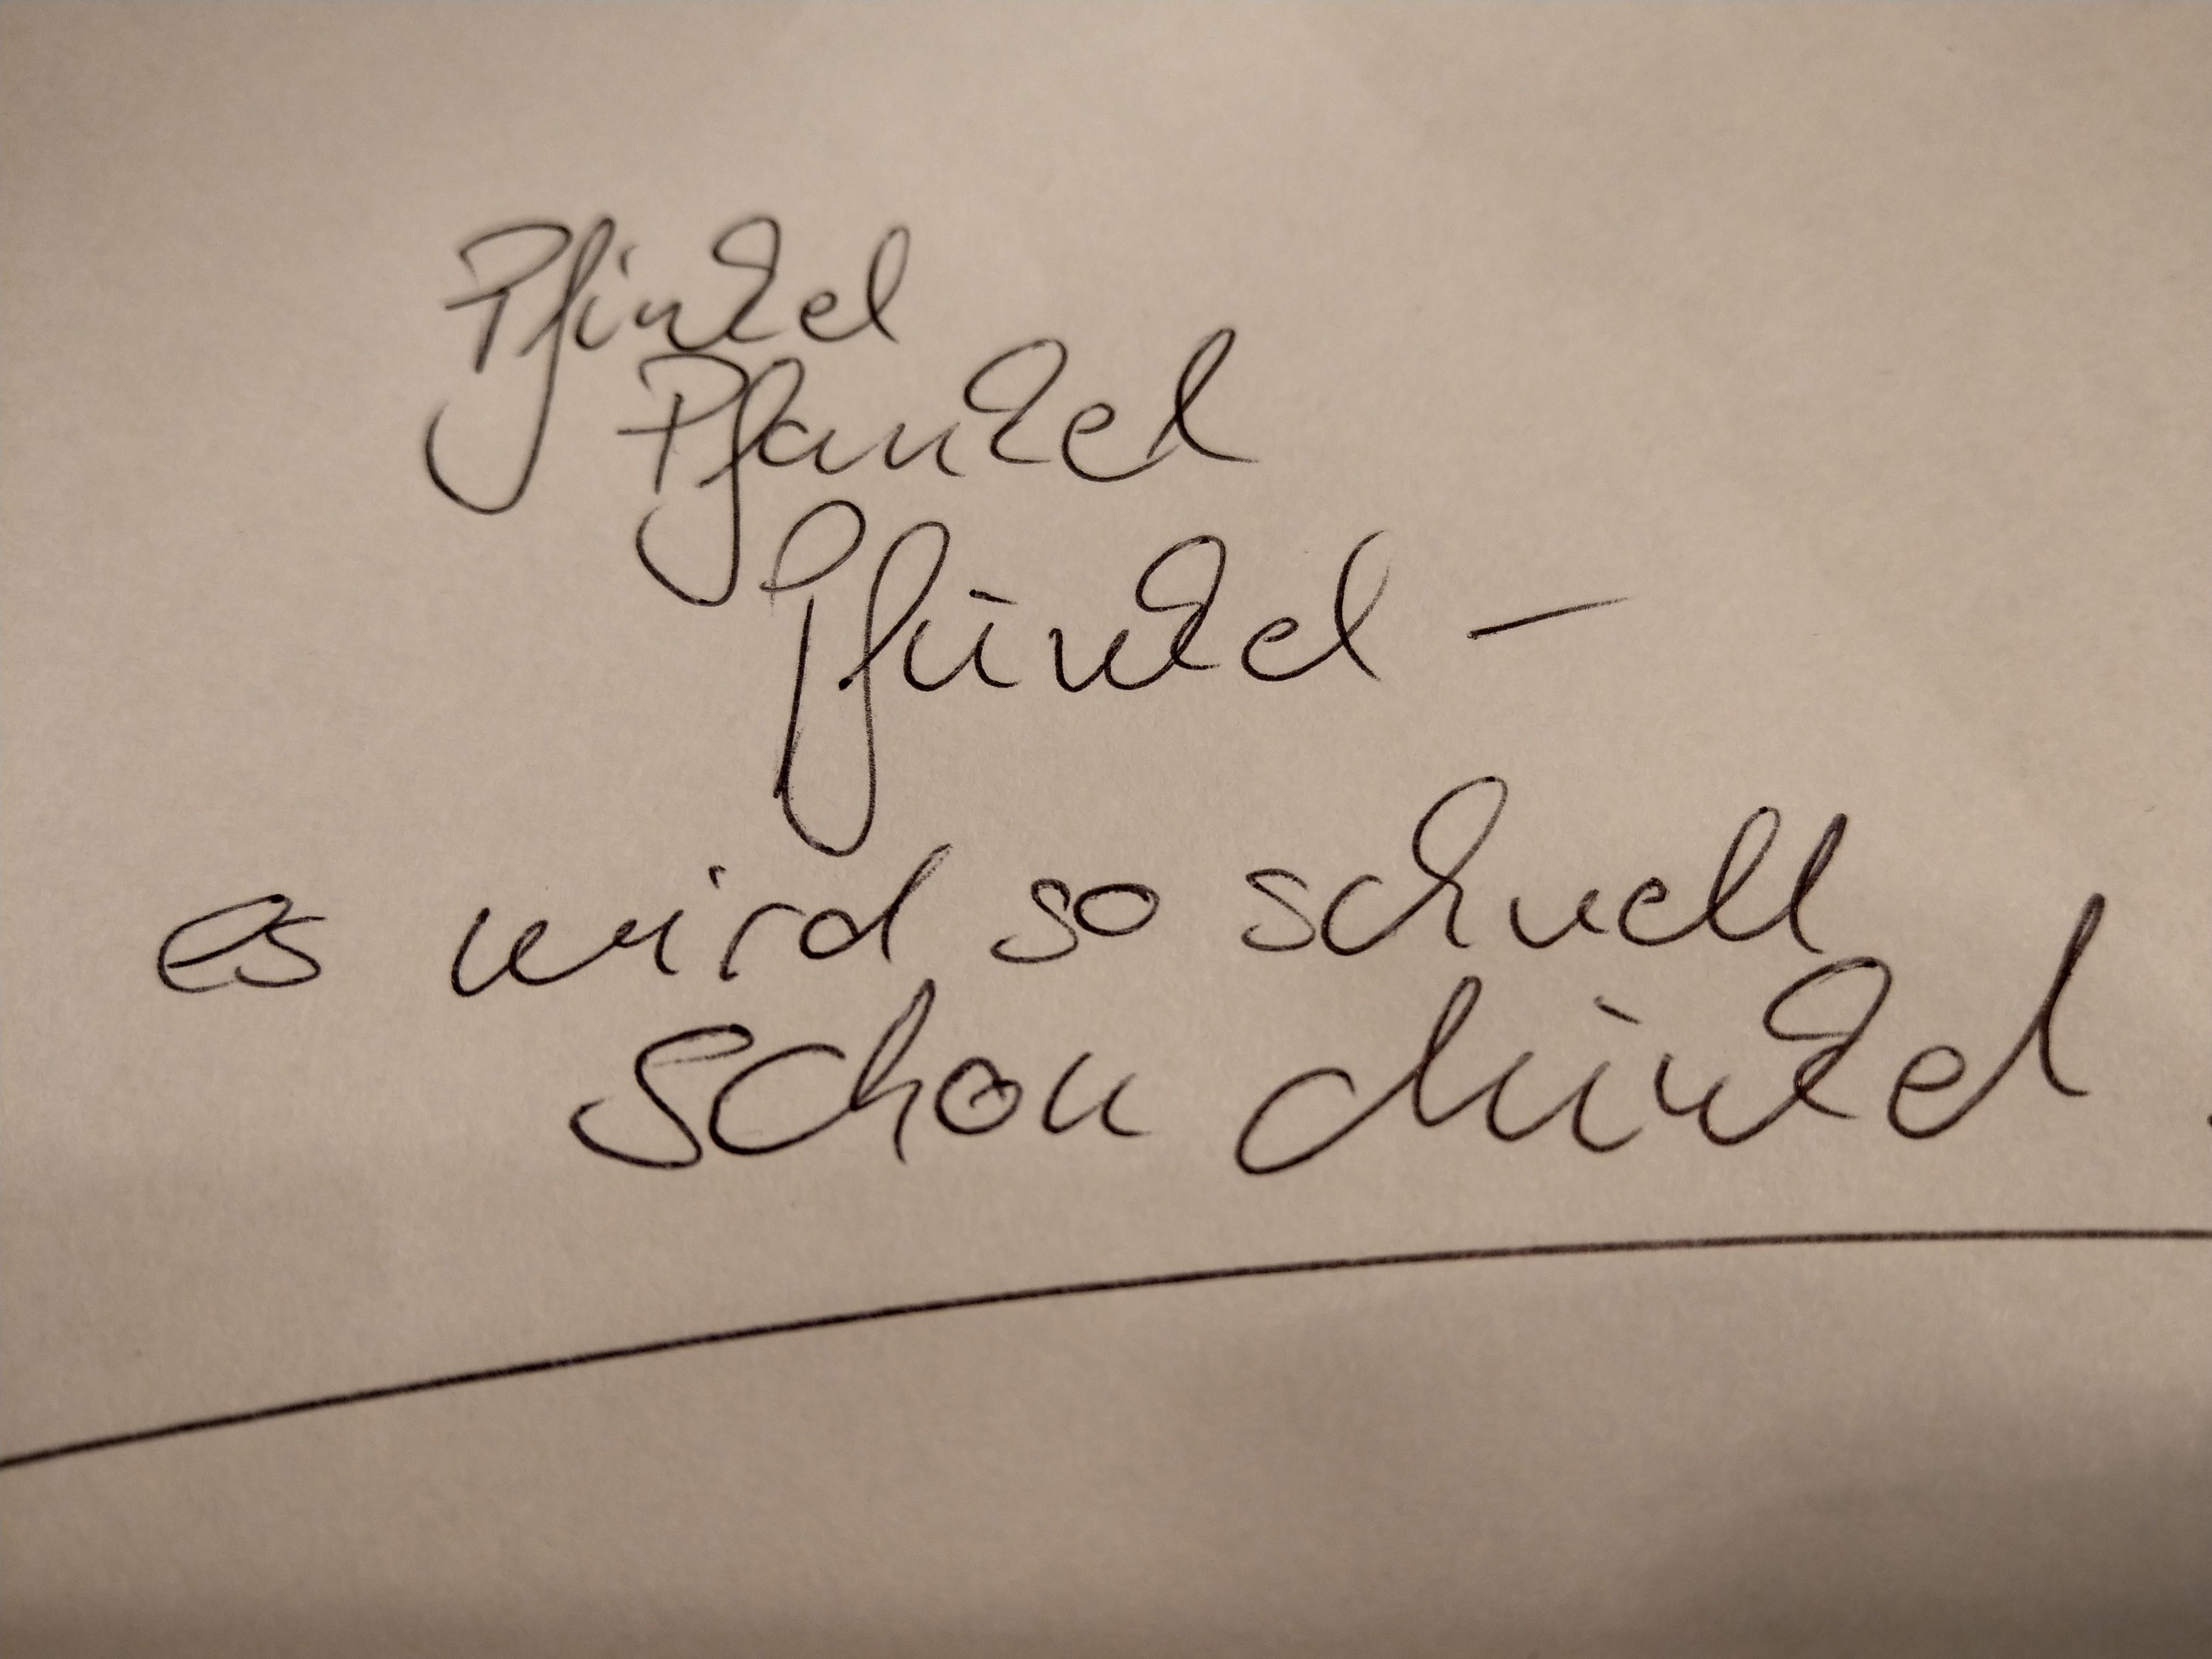 Pfinkel
Pfankel
Pfünkel –
es wird so schnell
schon dünkel.